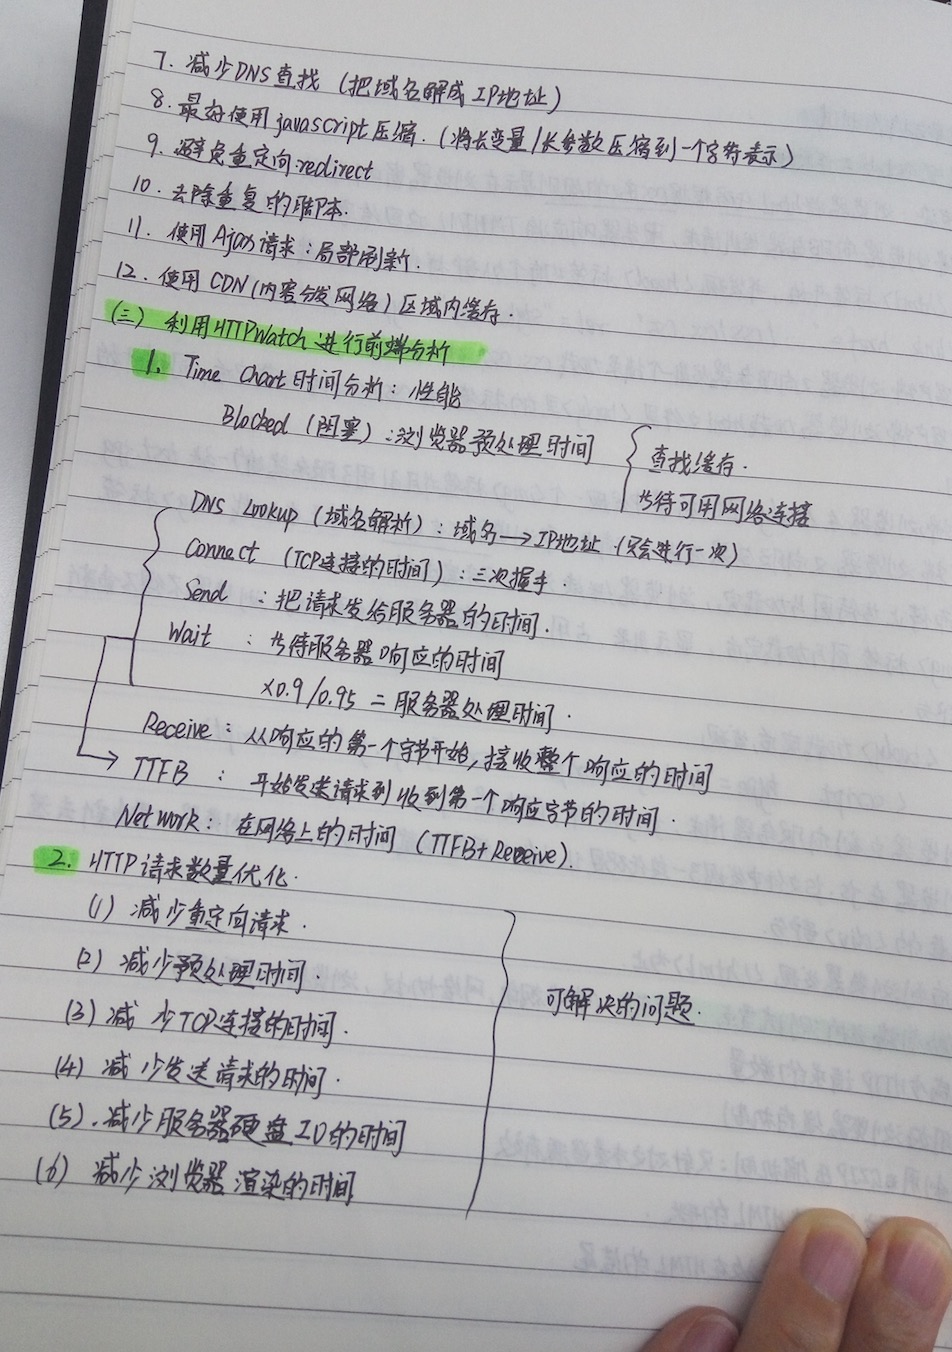 7. 减少DNS查找 (把域名解成IP地址)
8. 最好使用javascript压缩. (将长变量/长参数压缩到一个字符表示)
9. 避免重定向:redirect
10. 去除重复的脚本.
11. 使用Ajax请求:局部刷新.
12. 使用CDN(内容分发网络)区域内缓存.
(三) 利用HTTPWatch进行前端分析
1. Time Chart时间分析: 性能
Blocked (阻塞): 浏览器预处理时间 { 查找缓存.
等待可用网络连接
DNS Lookup (域名解析): 域名→IP地址 (只会进行一次)
Connect (TCP连接的时间): 三次握手.
Send : 把请求发给服务器的时间.
Wait : 等待服务器响应的时间
×0.9/0.95 = 服务器处理时间.
Receive: 从响应的第一个字节开始,接收整个响应的时间
TTFB : 开始发送请求到收到第一个响应字节的时间.
Network: 在网络上的时间 (TTFB+Receive).
2. HTTP请求数量优化.
(1) 减少重定向请求.
(2) 减少预处理时间
(3) 减少TCP连接的时间.
(4) 减少发送请求的时间.
(5). 减少服务器硬盘IO的时间
(6) 减少浏览器渲染的时间
可解决的问题.